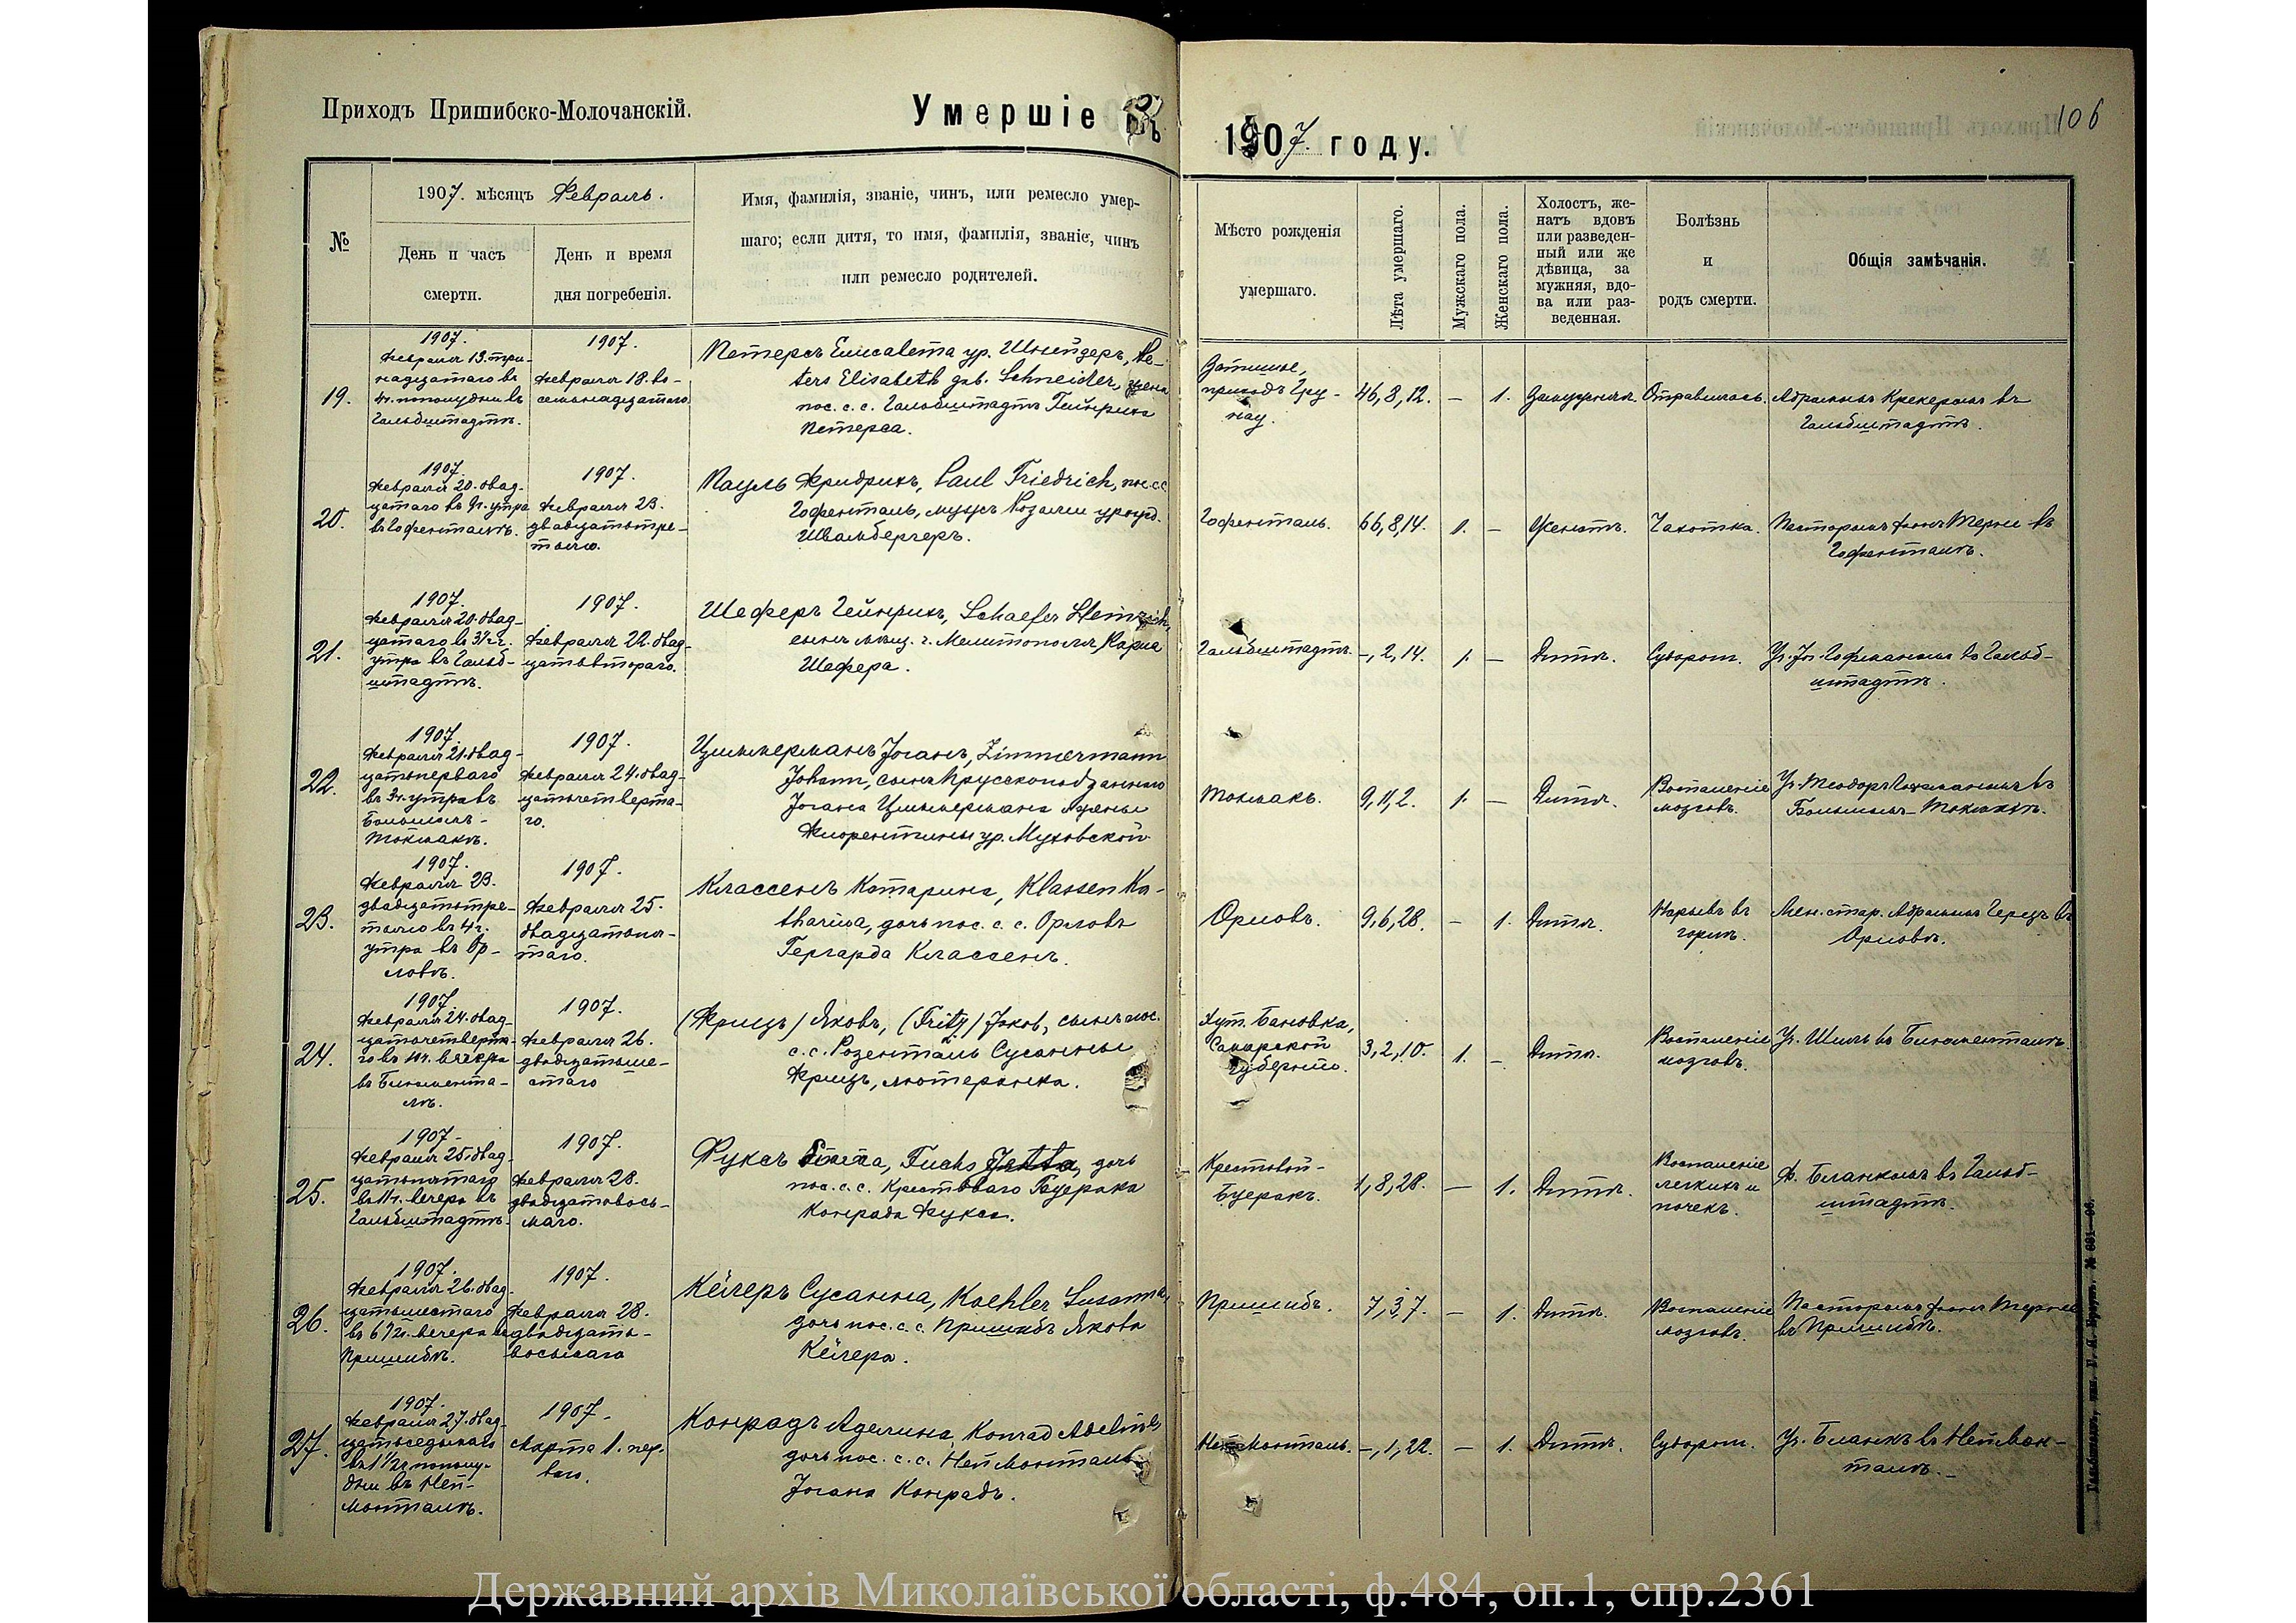 Приходъ Пришибско-Молочанскій.
Умершіе въ
1907 году.
106
№
1907. мѣсяцъ Февраль.
День и часъ
смерти.
День и время
дня погребенія.
Имя, фамилія, званіе, чинъ, или ремесло умер-
шаго; если дитя, то имя, фамилія, званіе, чинъ
или ремесло родителей.
Мѣсто рожденія
умершаго.
Лѣта умершаго.
Мужскаго пола.
Женскаго пола.
Холостъ, же-
натъ вдовъ
или разведен-
ный или же
дѣвица, за
мужняя, вдо-
ва или раз-
веденная.
Болѣзнь
и
родъ смерти.
Общія замѣчанія.
19.
1907.
Февраля 13. три-
надцатаго въ
4ч. пополудни въ
Гальбштадтѣ.
1907.
Февраля 18. во-
семьнадцатаго
Петерсъ Елисавета ур. Шнейдеръ, Pe-
ters Elisabeth geb. Schneider, жена
пос. с. с. Гальбштадтъ Гейнриха
Петерса.
Затишье,
приходъ Гру-
нау.
46,8,12.
—
1.
Замужняя.
Отравилась.
Абрамомъ Крекеромъ въ
Гальбштадтѣ.
20.
1907.
Февраля 20. двад-
цатаго въ 9ч. утра
въ Гофенталѣ.
1907.
Февраля 23.
двадцатьтре-
тьяго.
Пауль Фридрихъ, Paul Friedrich, пос. с.с.
Гофенталь, мужъ Розалии урожд.
Швамбергеръ.
Гофенталь.
66,8,14.
1.
—
Женатъ.
Чахотка.
Пасторомъ фонъ Терне въ
Гофенталѣ.
21.
1907.
Февраля 20. двад-
цатаго въ 3½ ч.
утра въ Гальб-
штадтѣ.
1907.
Февраля 22. двад-
цатьвтораго.
Шеферъ Гейнрихъ, Schaefer Heinrich,
сынъ мѣщ. г. Мелитополя, Карла
Шефера.
Гальбштадтъ.
-, 2, 14.
1.
—
Дитя.
Судорог.
Уч. Гофманомъ въ Гальб-
штадтѣ.
22.
1907.
Февраля 21. двад-
цатьперваго
въ 3ч. утра въ
Большомъ-
Токмакѣ.
1907.
Февраля 24. двад-
цатьчетверта-
го.
Циммерманъ Іоганъ, Zimmermann
Johann, сынъ прусскоподданнаго
Іогана Циммермана и жены
Флорентины ур. Муховской
Токмакъ.
9,11,2.
1.
—
Дитя.
Воспаленіе
мозговъ.
Уч. Теодоръ въ
Большомъ-Токмакѣ.
23.
1907.
Февраля 23.
двадцатьтре-
тьяго въ 4ч.
утра въ Ор-
ловѣ.
1907.
Февраля 25.
двадцатьпя-
таго.
Классенъ Катарина, Klassen Ka-
tharina, дочь пос. с. с. Орловъ
Гергарда Классенъ.
Орловъ.
9,6,28.
—
1.
Дитя.
Нарывъ въ
горлѣ.
Мен. стар. Абрамомъ Герцъ въ
Орловѣ.
24.
1907.
Февраля 24. двад-
цатьчетверта-
го въ 11ч. вечера
въ Блюмента-
лѣ.
1907.
Февраля 26.
двадцатьше-
стаго
(Фрицъ) Яковъ, (Fritz) Jakob, сынъ пос.
с. с. Розенталь Сусанны
Фрицъ, лютеранка.
Хут. Бановка,
Самарской
губерніи.
3,2,10.
1.
—
Дитя.
Воспаленіе
мозговъ.
Уч. Шиль въ Блюменталѣ.
25.
1907.
Февраля 25. двад-
цатьпятаго
въ 11ч. вечера въ
Гальбштадтѣ.
1907.
Февраля 28.
двадцатьвось-
маго.
Фуксъ Fuchs дочь
пос. с. с. Крестоваго Буерака
Конрада Фукса.
Крестовой-
Буеракъ.
1,8,28.
—
1.
Дитя.
Воспаленіе
легкихъ и
почекъ.
Ф. Бланкомъ въ Гальб-
штадтѣ.
26.
1907.
Февраля 26. двад-
цатьшестаго
въ 6½ч. вечера въ
Пришибѣ.
1907.
Февраля 28.
двадцать-
восьмаго
Кёлеръ Сусанна, Koehler Susanna,
дочь пос. с. с. Пришибъ Якова
Кёлера.
Пришибъ.
7,3,7.
—
1.
Дитя.
Воспаленіе
мозговъ.
Пасторомъ фонъ Терне
въ Пришибѣ.
27.
1907.
Февраля 27. двад-
цатьседьмаго
въ 1½ч. пополу-
дни въ Ней-
Монталѣ.
1907.
Марта 1. пер-
ваго.
Конрадъ Аделина, Konrad Adeline,
дочь пос. с. с. Нейъ Монталь
Іогана Конрадъ.
Ней-Монталь.
-, 1, 22.
—
1.
Дитя.
Судорог.
Уч. Бланкъ въ Неймон-
талѣ.
Державний архів Миколаївської області, ф.484, оп.1, спр.2361